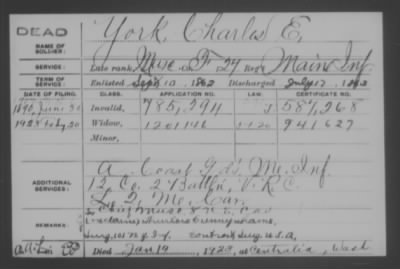 DEAD
York, Charles E.
NAME OF SOLDIER:
SERVICE: Late rank, Musc F 27 Reg't Maine Inf.
TERM OF SERVICE: Enlisted Sept 10, 1862 Discharged July 17, 1863
DATE OF FILING. CLASS. APPLICATION NO. LAW. CERTIFICATE NO.
1890, June 30 Invalid, 785,294 J 587,268
1923 Feby 20 Widow, 1201146 941627
Minor,
ADDITIONAL SERVICES: A Coast Gds. Me. Inf.
12 Co. 2 Battln, V.R.C.
L 2, Me. Cav.
REMARKS:
Surg. U.S.A.
Died Jan 19, 1923, at Centralia, Wash